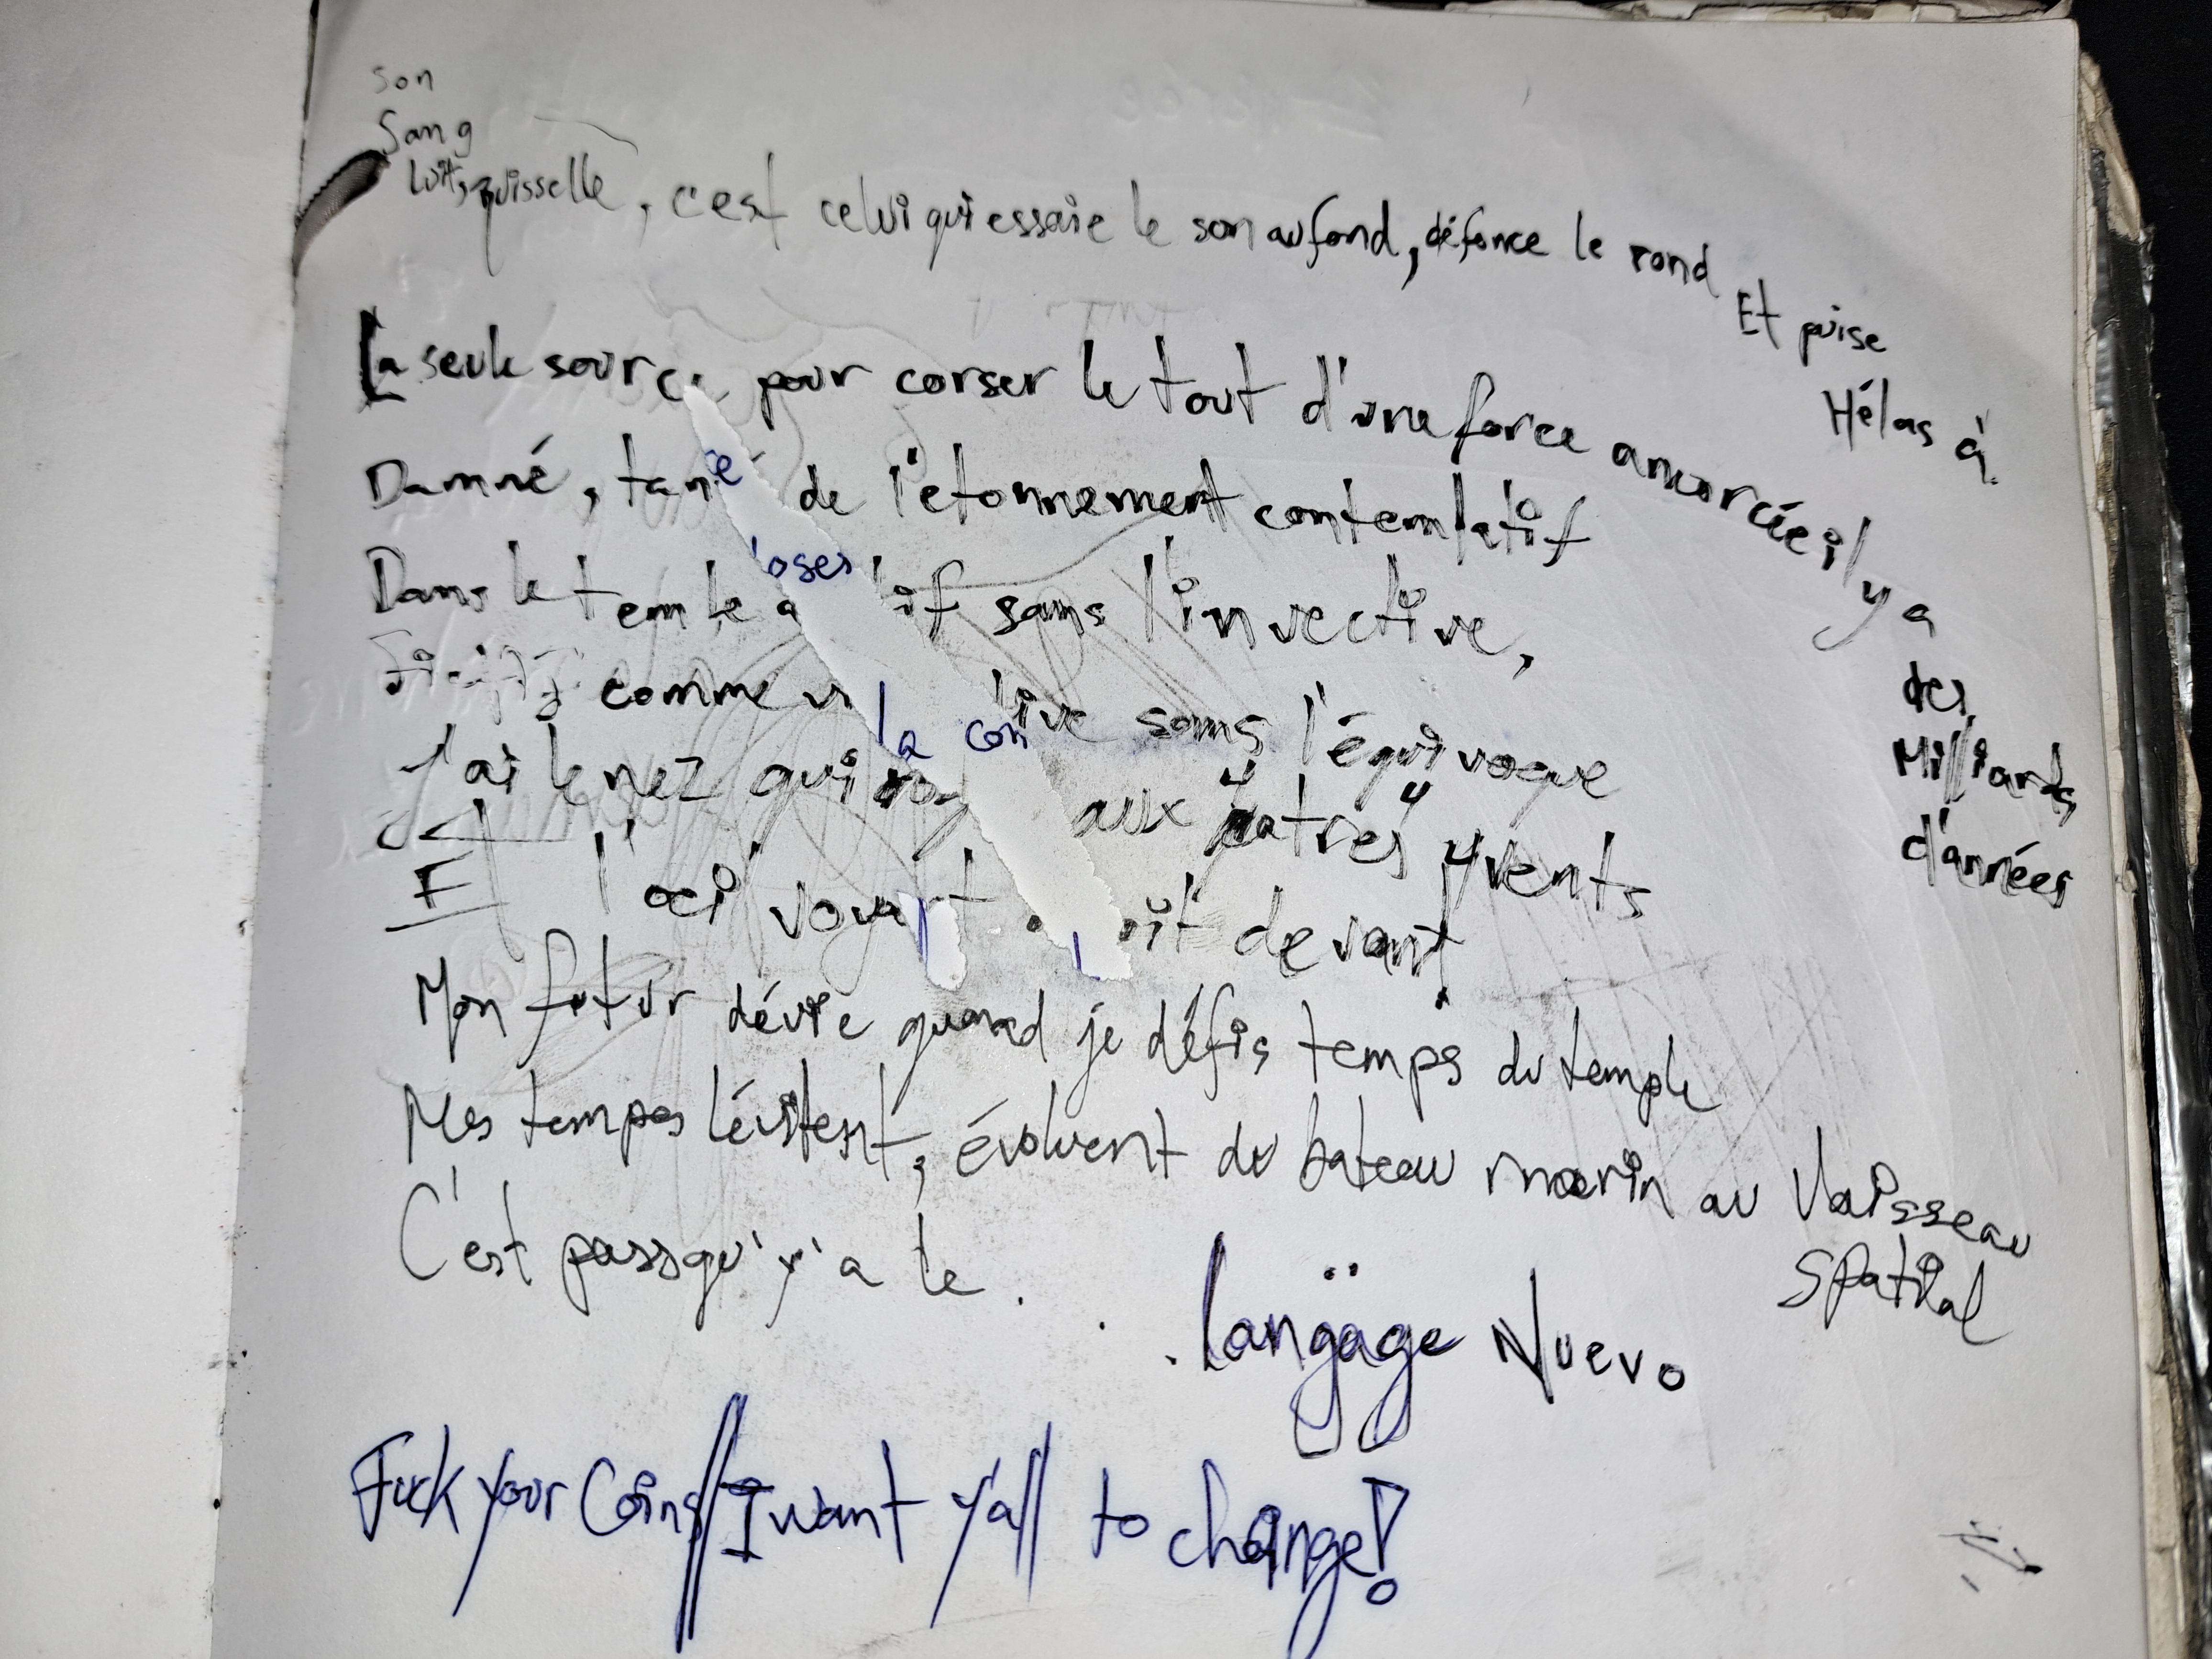 Son
Sang
Luit, ruisselle, c'est celui qui essaie le son au fond, défonce le rond
Et puise
La seule source pour corser le tout d'une force amorcée il y a
Hélas à
des
Milliards
d'années
Damné, tanné de l'étonnement contemlatif
oses
Dans le temle a if sans l'invective,
comme ive sans l'équivoque
la con
J'ai le nez qui aux 4 "atres" 4 vents
E l'oeil voyant oit devant
Mon futur dévie quand je défis temps du temple
Mes temps lévitent, évoluent du bateau marin au Vaisseau
Spatial
C'est passqu'y'a le .
. langäge Nuevo
Fuck your Coins // I want y'all to change!